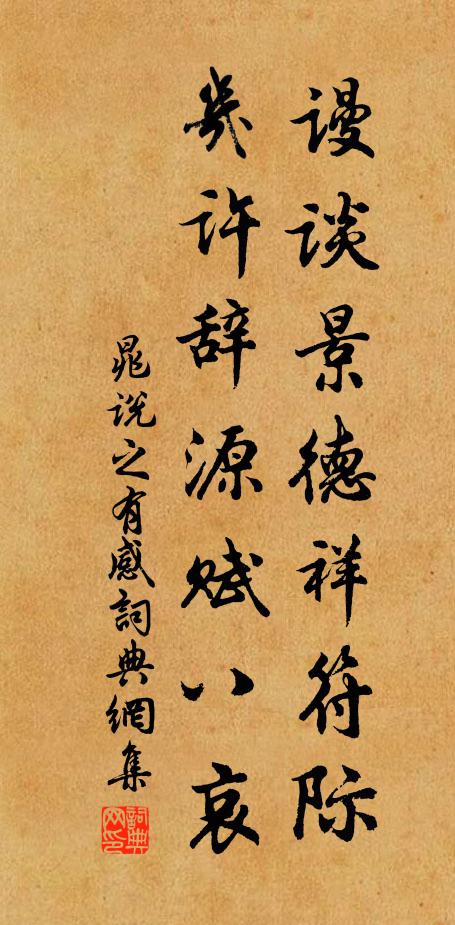 谩谈景德祥符际
几许辞源赋八哀
晁说之有感詞典網集
詞典網印